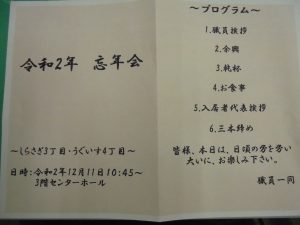 令和2年 忘年会
～しらさぎ3丁目・うぐいす4丁目～
日時:令和2年12月11日10:45～
3階センターホール
～プログラム～
1.職員挨拶
2.余興
3.乾杯
4.お食事
5.入居者代表挨拶
6.三本締め
皆様、本日は、日頃の労を労い
大いに、お楽しみ下さい。
職員一同